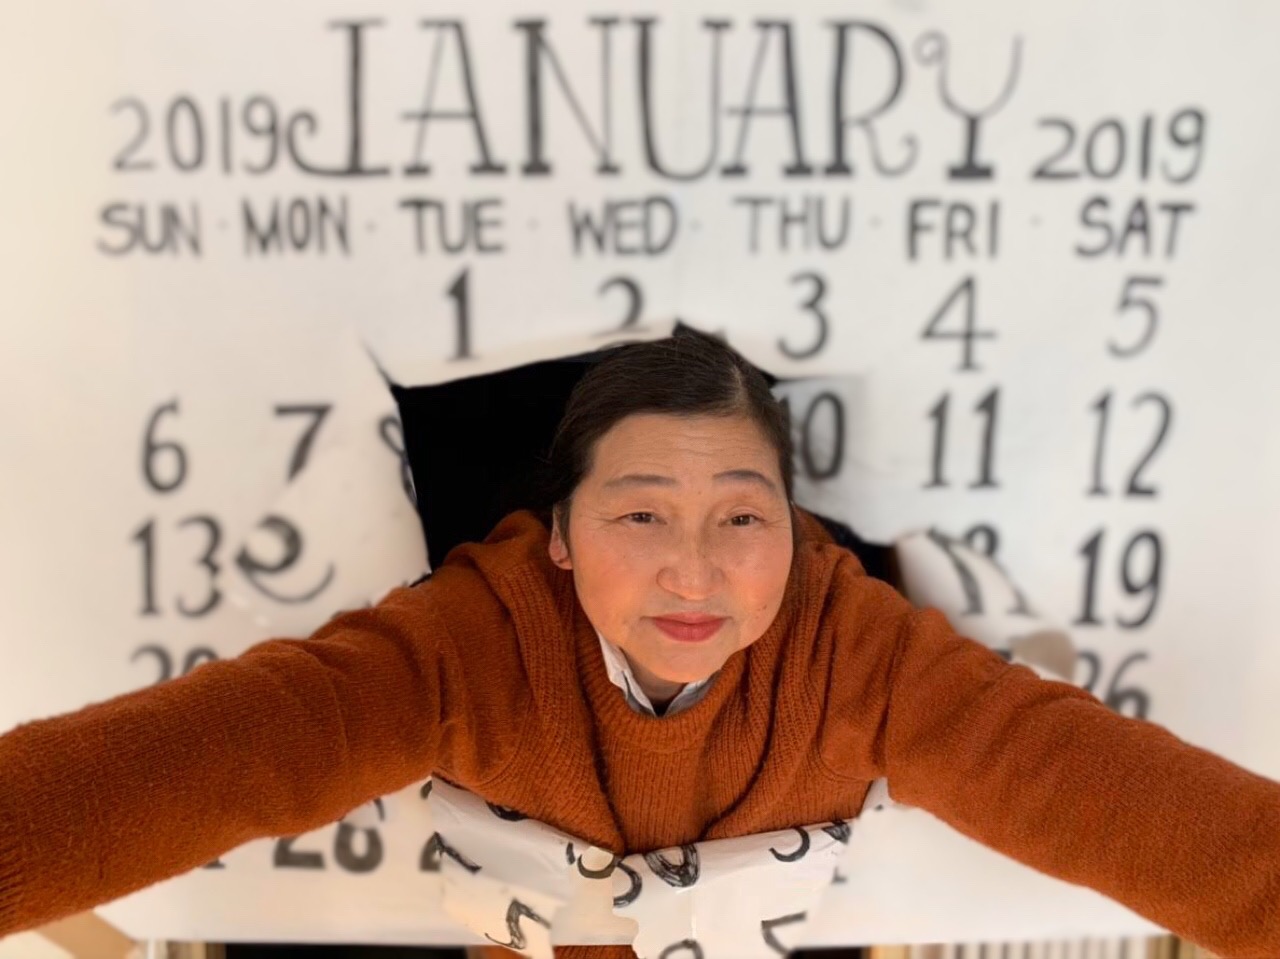 2019 JANUARY 2019
SUN · MON · TUE · WED · THU · FRI · SAT
1 2 3 4 5
6 7 8 10 11 12
13 19
26
28